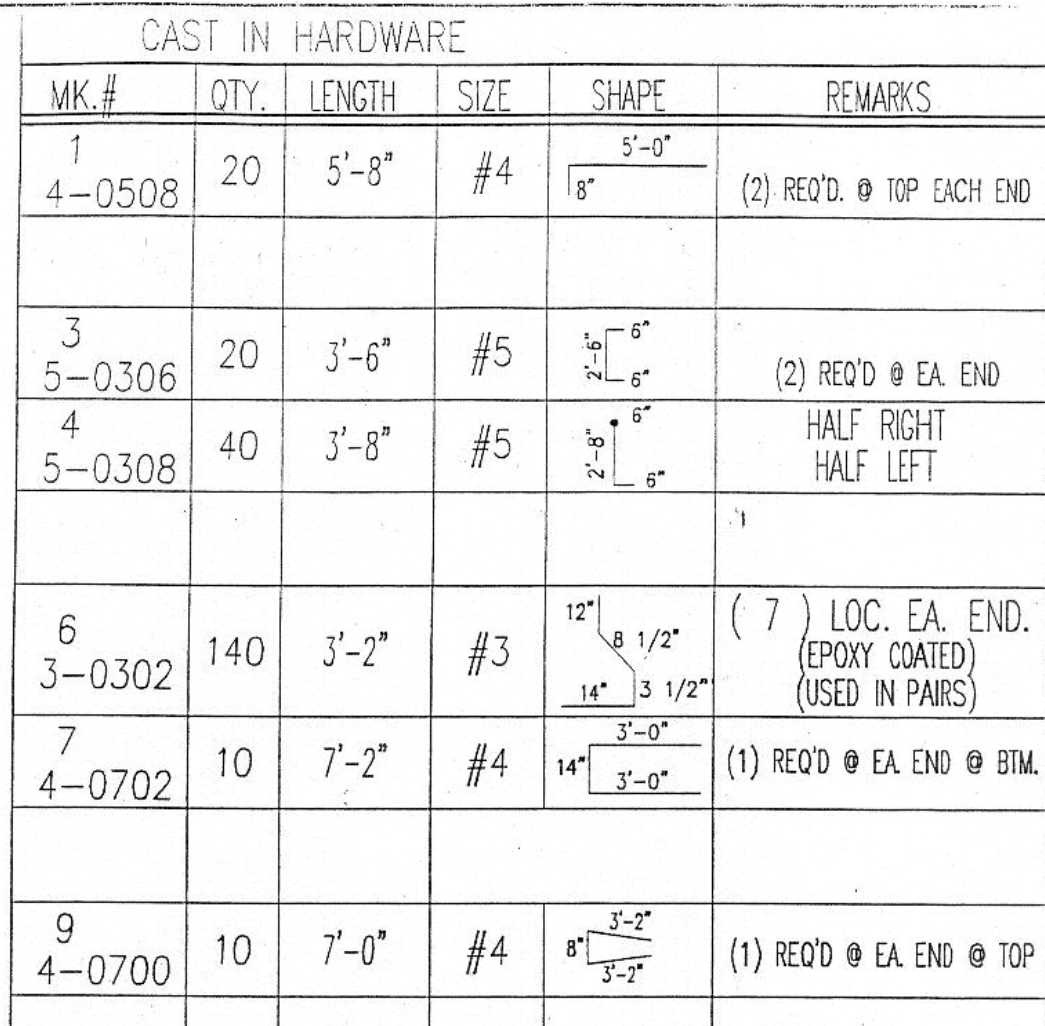 CAST IN HARDWARE
MK.# QTY. LENGTH SIZE SHAPE REMARKS
1
4-0508 20 5'-8" #4 5'-0" 8" (2) REQ'D. @ TOP EACH END
3
5-0306 20 3'-6" #5 6" 2'-6" 6" (2) REQ'D @ EA. END
4
5-0308 40 3'-8" #5 6" 2'-8" 6" HALF RIGHT
HALF LEFT
6
3-0302 140 3'-2" #3 12" 8 1/2" 14" 3 1/2" ( 7 ) LOC. EA. END.
(EPOXY COATED)
(USED IN PAIRS)
7
4-0702 10 7'-2" #4 3'-0" 14" 3'-0" (1) REQ'D @ EA. END @ BTM.
9
4-0700 10 7'-0" #4 3'-2" 8" 3'-2" (1) REQ'D @ EA. END @ TOP